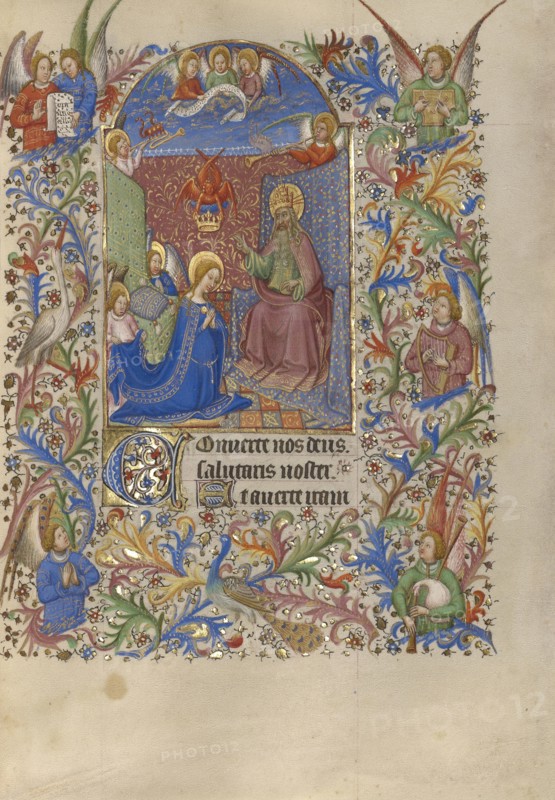 Converte nos deus.
salutaris noster.
Et averte iram
PHOTO12
PHOTO12
PHOTO12
PHOTO12